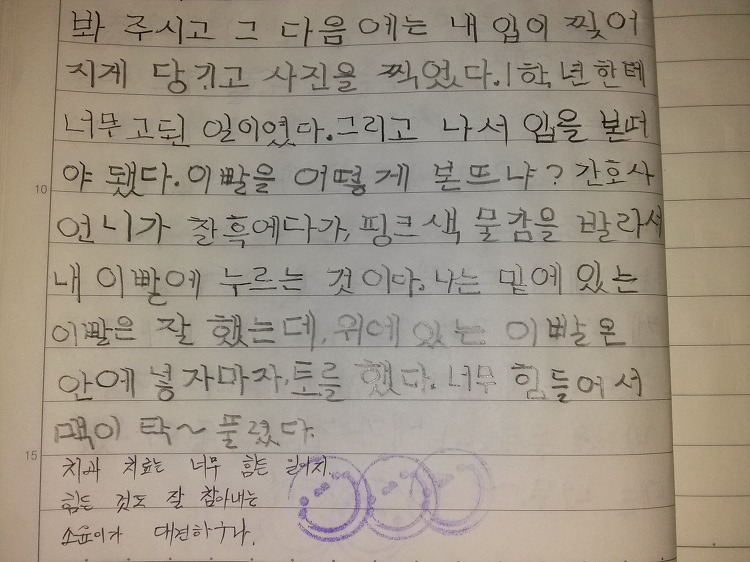 봐 주시고 그 다음에는 내 입이 찢어
지게 당기고 사진을 찍었다. 1학년한테
너무 고된 일이였다. 그리고 나서 입을 본떠
야 됐다. 이빨을 어떻게 본뜨냐? 간호사
언니가 찰흑에다가, 핑크색 물감을 발라서
내 이빨에 누르는 것이다. 나는 밑에 있는
이빨은 잘 했는데, 위에 있는 이빨은
안에 넣자마자, 토를 했다. 너무 힘들어서
맥이 탁~ 풀렸다.
10
15
치과 치료는 너무 힘든 일이지.
힘든 것도 잘 참아내는
소윤이가 대견하구나.